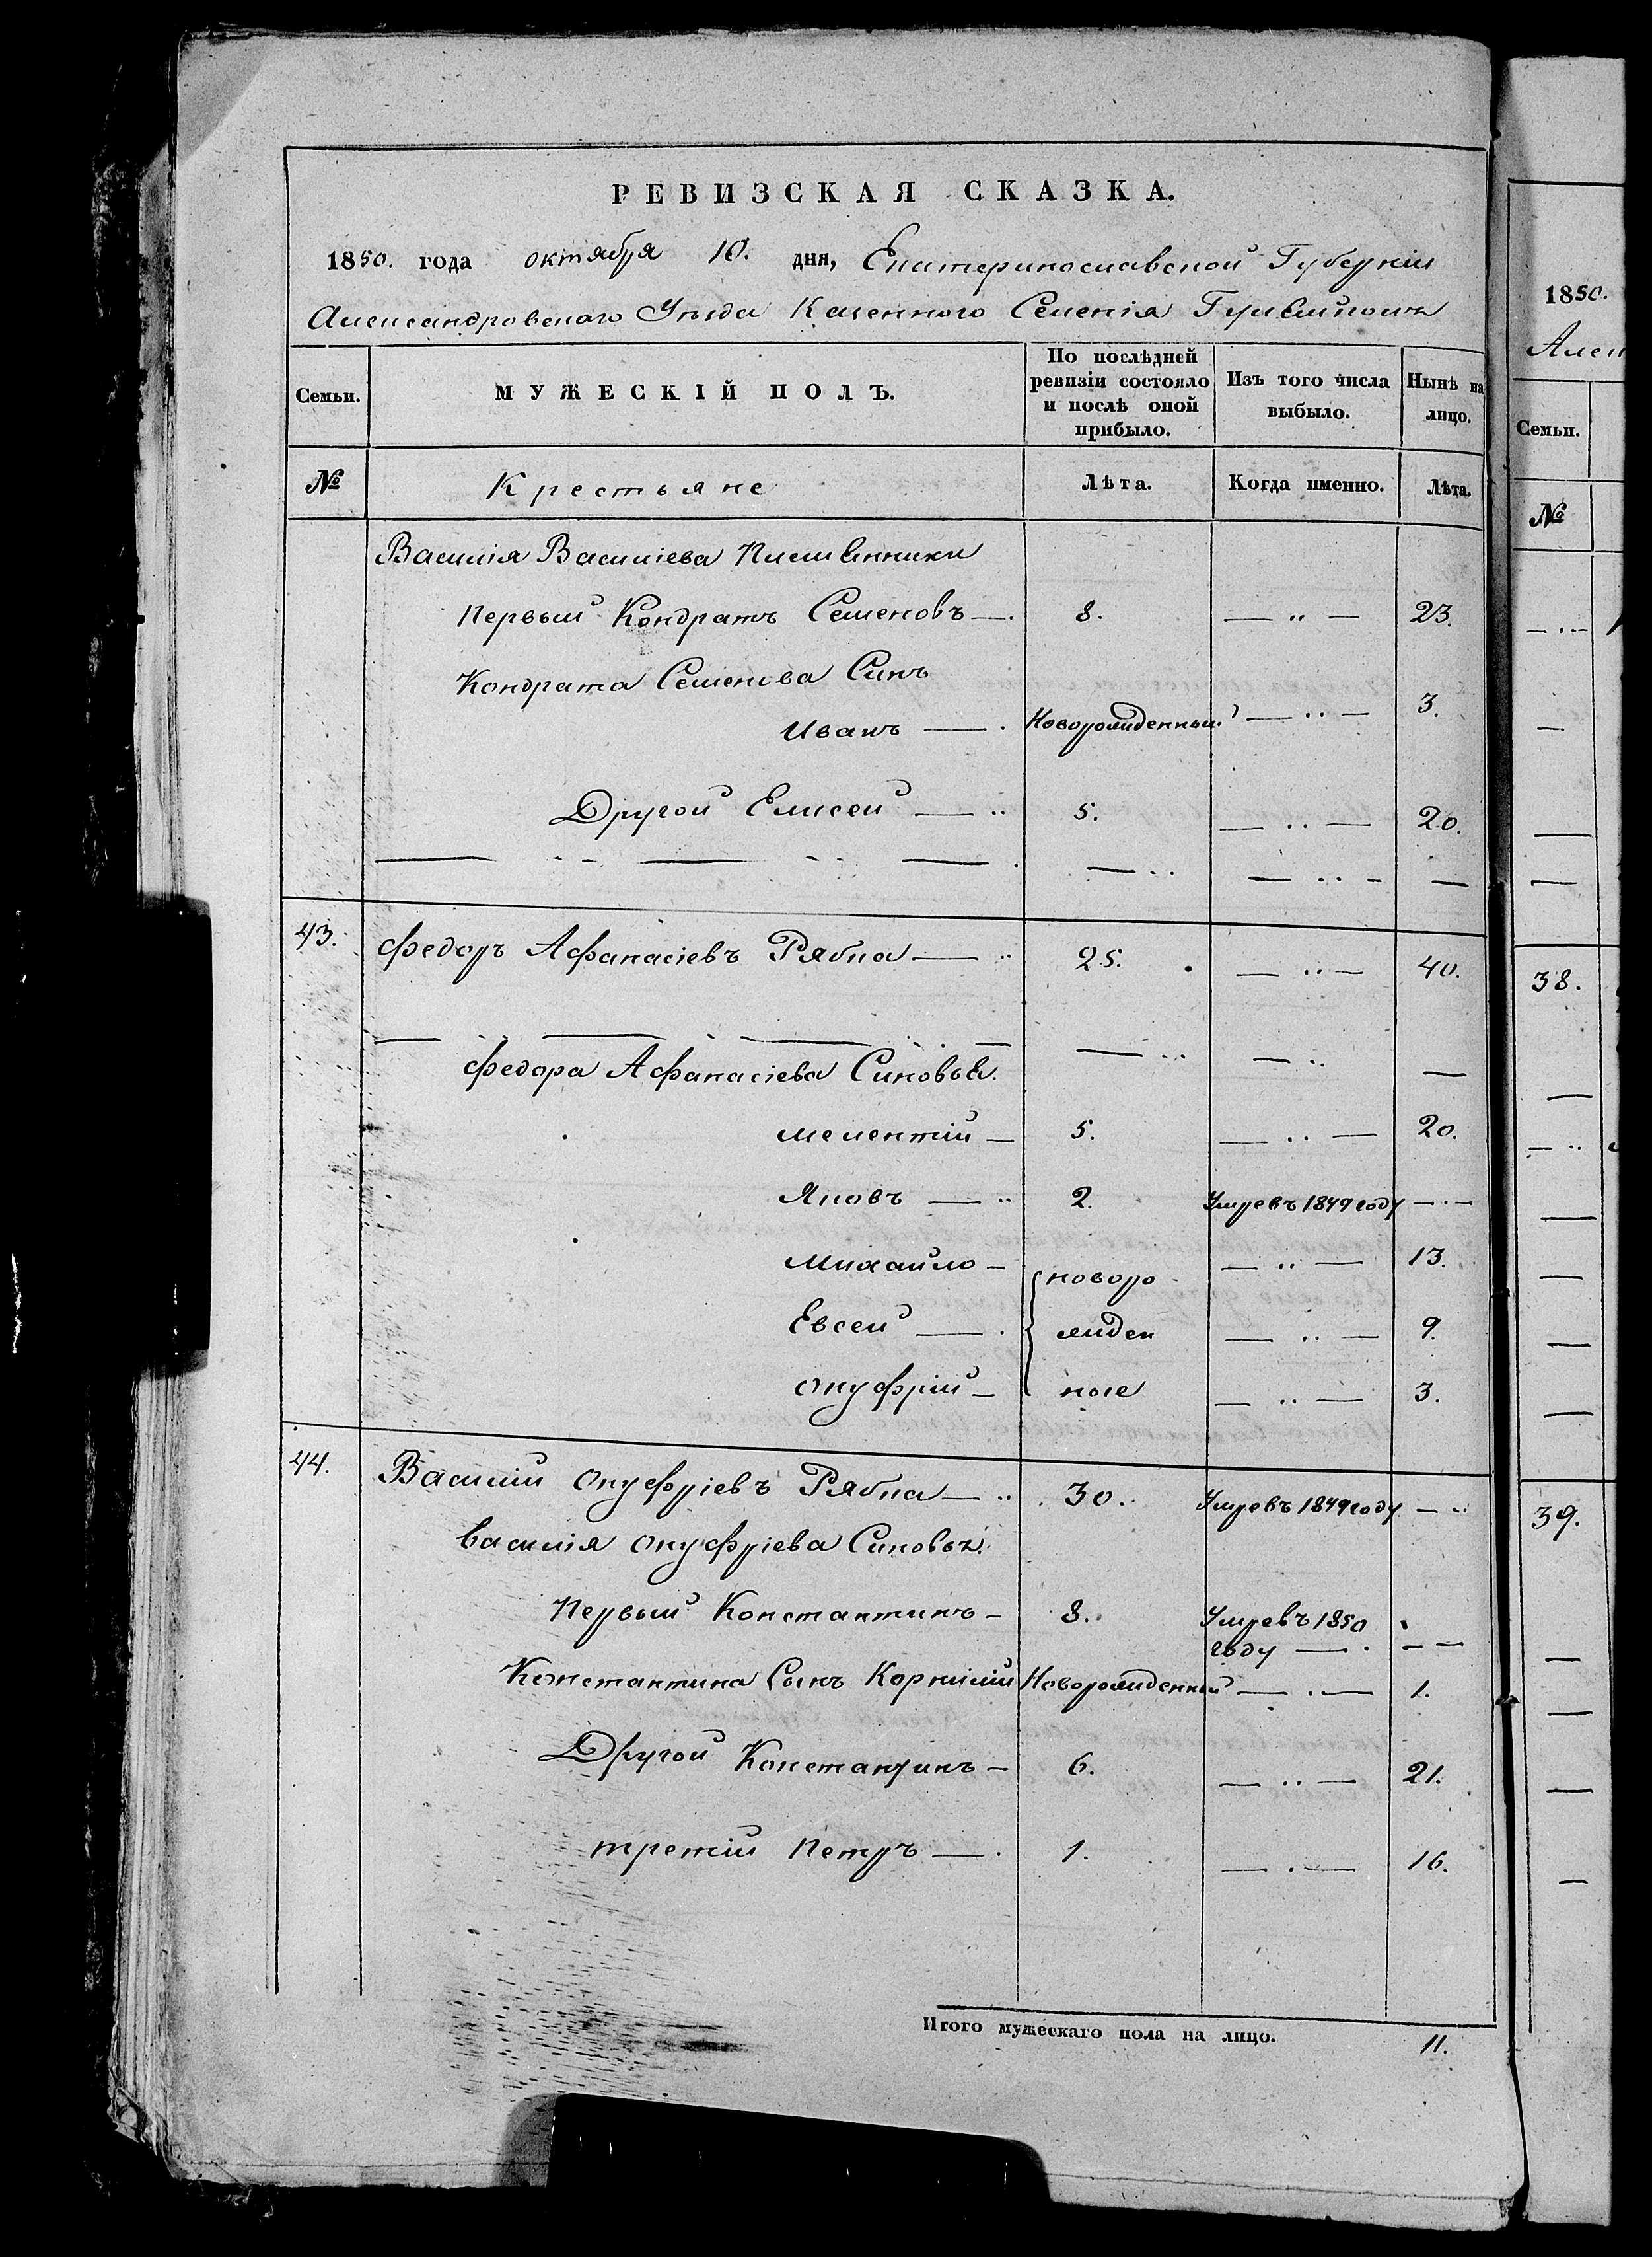 РЕВИЗСКАЯ СКАЗКА.
1850. года октября 10. дня, Екатеринославской Губерніи
Александровскаго Уѣзда Казенного Селенія
Семьи. МУЖЕСКІЙ ПОЛЪ. По послѣдней ревизіи состояло и послѣ оной прибыло. Изъ того числа выбыло. Нынѣ на лицо.
№ Крестьяне Лѣта. Когда именно. Лѣта.
Василія Василіева Племѣнники
Первый Кондратъ Семеновъ — 8. — " — 23.
Кондрата Семенова Синъ
Иванъ — Новорожденный — " — 3.
Другой Елисей — 5. — " — 20.
43. Федоръ Афанасіевъ Рябка — 25. — " — 40.
Федора Афанасіева Синовья.
Мелентій — 5. — " — 20.
Яковъ — 2. Умревъ 1849 году —
Михайло — новоро — " — 13.
Евсей — жден — " — 9.
Онуфрій — ные — " — 3.
44. Василий Онуфріевъ Рябка — 30. Умревъ 1849 году —
Василія Онуфріева Синовья.
Первый Константинъ — 8. Умревъ 1850
году — —
Константина Сынъ Корнилий Новорожденный — " — 1.
Другой Константинъ — 6. — " — 21.
третій Петръ — 1. — " — 16.
Итого мужескаго пола на лицо. 11.
1850.
Алек
Семьи.
№
38.
39.